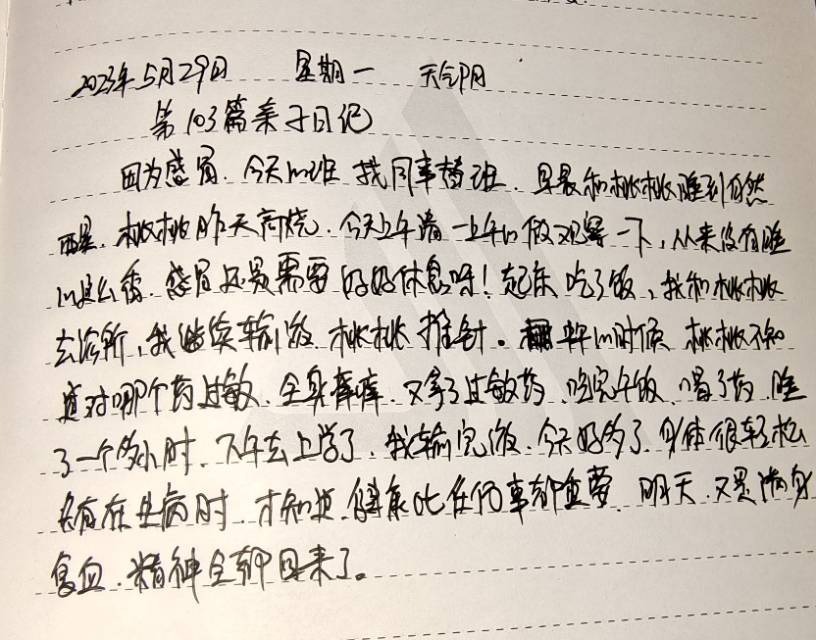 2023年5月29日 星期一 天气阴
第103篇亲子日记
因为感冒.今天的班 找同事替班.早晨和桃桃睡到自然
醒.桃桃昨天高烧.今天上午请一上午的假观察一下,从来没有睡
的这么香.感冒还是需要好好休息呀!起床吃了饭,我和桃桃
去诊所,我继续输液.桃桃推针。中午的时候 桃桃不知
道对哪个药过敏.全身痒痒.又拿了过敏药.吃完午饭 喝了药.睡
了一个多小时.下午去上学了.我输完液.今天好多了.身体很轻松
只有在生病时.才知道.健康比任何事都重要 明天.又是满身
复血.精神全部回来了。